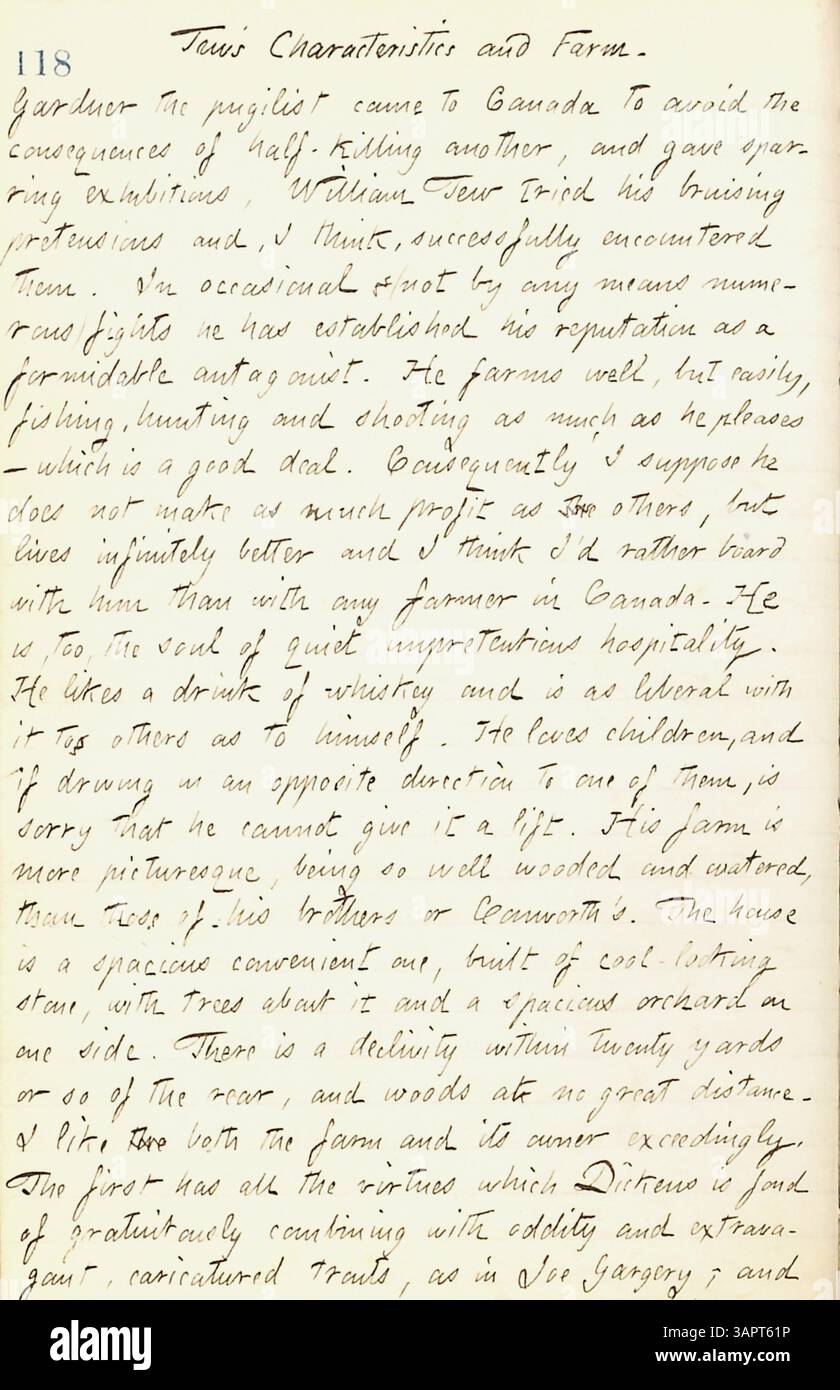 Tew's Characteristics and Farm.
118
Gardner the pugilist came to Canada to avoid the
consequences of half-killing another, and gave spar-
ring exhibitions, William Tew tried his bruising
pretensions and, I think, successfully encountered
them. In occasional (not by any means nume-
rous) fights he has established his reputation as a
formidable antagonist. He farms well, but easily,
fishing, hunting and shooting as much as he pleases
— which is a good deal. Consequently I suppose he
does not make as much profit as the others, but
lives infinitely better and I think I'd rather board
with him than with any farmer in Canada. He
is, too, the soul of quiet unpretentious hospitality.
He likes a drink of whiskey and is as liberal with
it to others as to himself. He loves children, and
if driving in an opposite direction to one of them, is
sorry that he cannot give it a lift. His farm is
more picturesque, being so well wooded and watered,
than those of his brothers or Conworth's. The house
is a spacious convenient one, built of cool-looking
stone, with trees about it and a spacious orchard on
one side. There is a declivity within twenty yards
or so of the rear, and woods at no great distance.
I like both the farm and its owner exceedingly.
The first has all the virtues which Dickens is fond
of gratuitously combining with oddity and extrava-
gant, caricatured traits, as in Joe Gargery; and
alamy
Image ID: 3APT61P
www.alamy.com